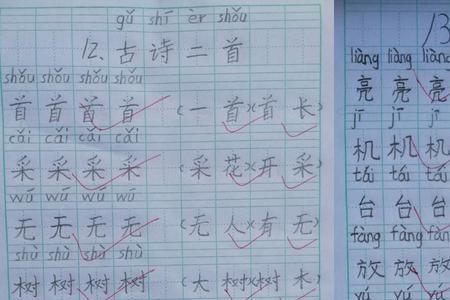 gǔ shī èr shǒu
12. 古诗二首
shǒu shǒu shǒu shǒu
首 首 首 首 (一首)(首长)
cǎi cǎi cǎi cǎi
采 采 采 采 (采花)(开采)
wú wú wú wú
无 无 无 无 (无人)(有无)
shù shù shù shù
树 树 树 树 (大树)(树木)
13
liàng liàng liàng
亮 亮 亮
jī jī jī
机 机 机
tái tái tái
台 台 台
fàng fàng fàng
放 放 放
yú yú